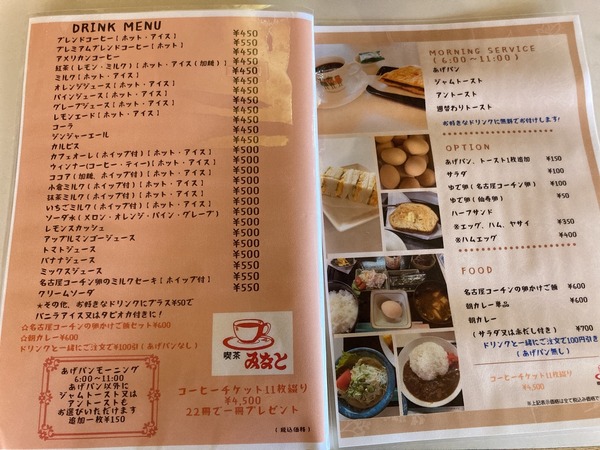 DRINK MENU
ブレンドコーヒー【ホット・アイス】 ¥450
プレミアムブレンドコーヒー【ホット】 ¥550
アメリカンコーヒー ¥450
紅茶(レモン・ミルク)【ホット・アイス(加糖)】 ¥450
ミルク【ホット・アイス】 ¥450
オレンジジュース【ホット・アイス】 ¥450
パインジュース【ホット・アイス】 ¥450
グレープジュース【ホット・アイス】 ¥450
レモンエード【ホット・アイス】 ¥450
コーラ ¥450
ジンジャーエール ¥450
カルピス ¥450
カフェオーレ(ホイップ付)【ホット・アイス】 ¥500
ウィンナー(コーヒー・ティー)【ホット・アイス】 ¥500
ココア(加糖、ホイップ付)【ホット・アイス】 ¥500
小倉ミルク(ホイップ付)【ホット・アイス】 ¥500
抹茶ミルク(ホイップ付)【ホット・アイス】 ¥500
いちごミルク(ホイップ付)【ホット・アイス】 ¥500
ソーダ水(メロン・オレンジ・パイン・グレープ) ¥500
レモンスカッシュ ¥500
アップルマンゴージュース ¥500
トマトジュース ¥500
バナナジュース ¥500
ミックスジュース ¥500
名古屋コーチン卵のミルクセーキ【ホイップ付】 ¥550
クリームソーダ ¥550
★その他、お好きなドリンクにプラス¥50で
バニラアイス又はタピオカ付きに!
☆名古屋コーチンの卵かけご飯セット¥600
☆朝カレー¥600
ドリンクと一緒にご注文で¥100引(あげパンなし)
あげパンモーニング
6:00~11:00
あげパン以外に
ジャムトースト又は
アントーストも
お選びいただけます
追加一枚¥150
喫茶 みなと
コーヒーチケット11枚綴り
¥4,500
22冊で一冊プレゼント
(税込価格)
MORNING SERVICE
(6:00~11:00)
あげパン
ジャムトースト
アントースト
週替わりトースト
お好きなドリンクに無料でお付けします!
OPTION
あげパン、トースト1枚追加 ¥150
サラダ ¥100
ゆで卵(名古屋コーチン卵) ¥100
ゆで卵(仙寿卵) ¥50
ハーフサンド
※エッグ、ハム、ヤサイ ¥350
※ハムエッグ ¥400
FOOD
名古屋コーチンの卵かけご飯 ¥600
朝カレー単品 ¥600
朝カレー
(サラダ又は赤だし付き) ¥700
ドリンクと一緒にご注文で100円引き
(あげパン無し)
コーヒーチケット11枚綴り
¥4,500
※上記表示価格は全て税込み価格です